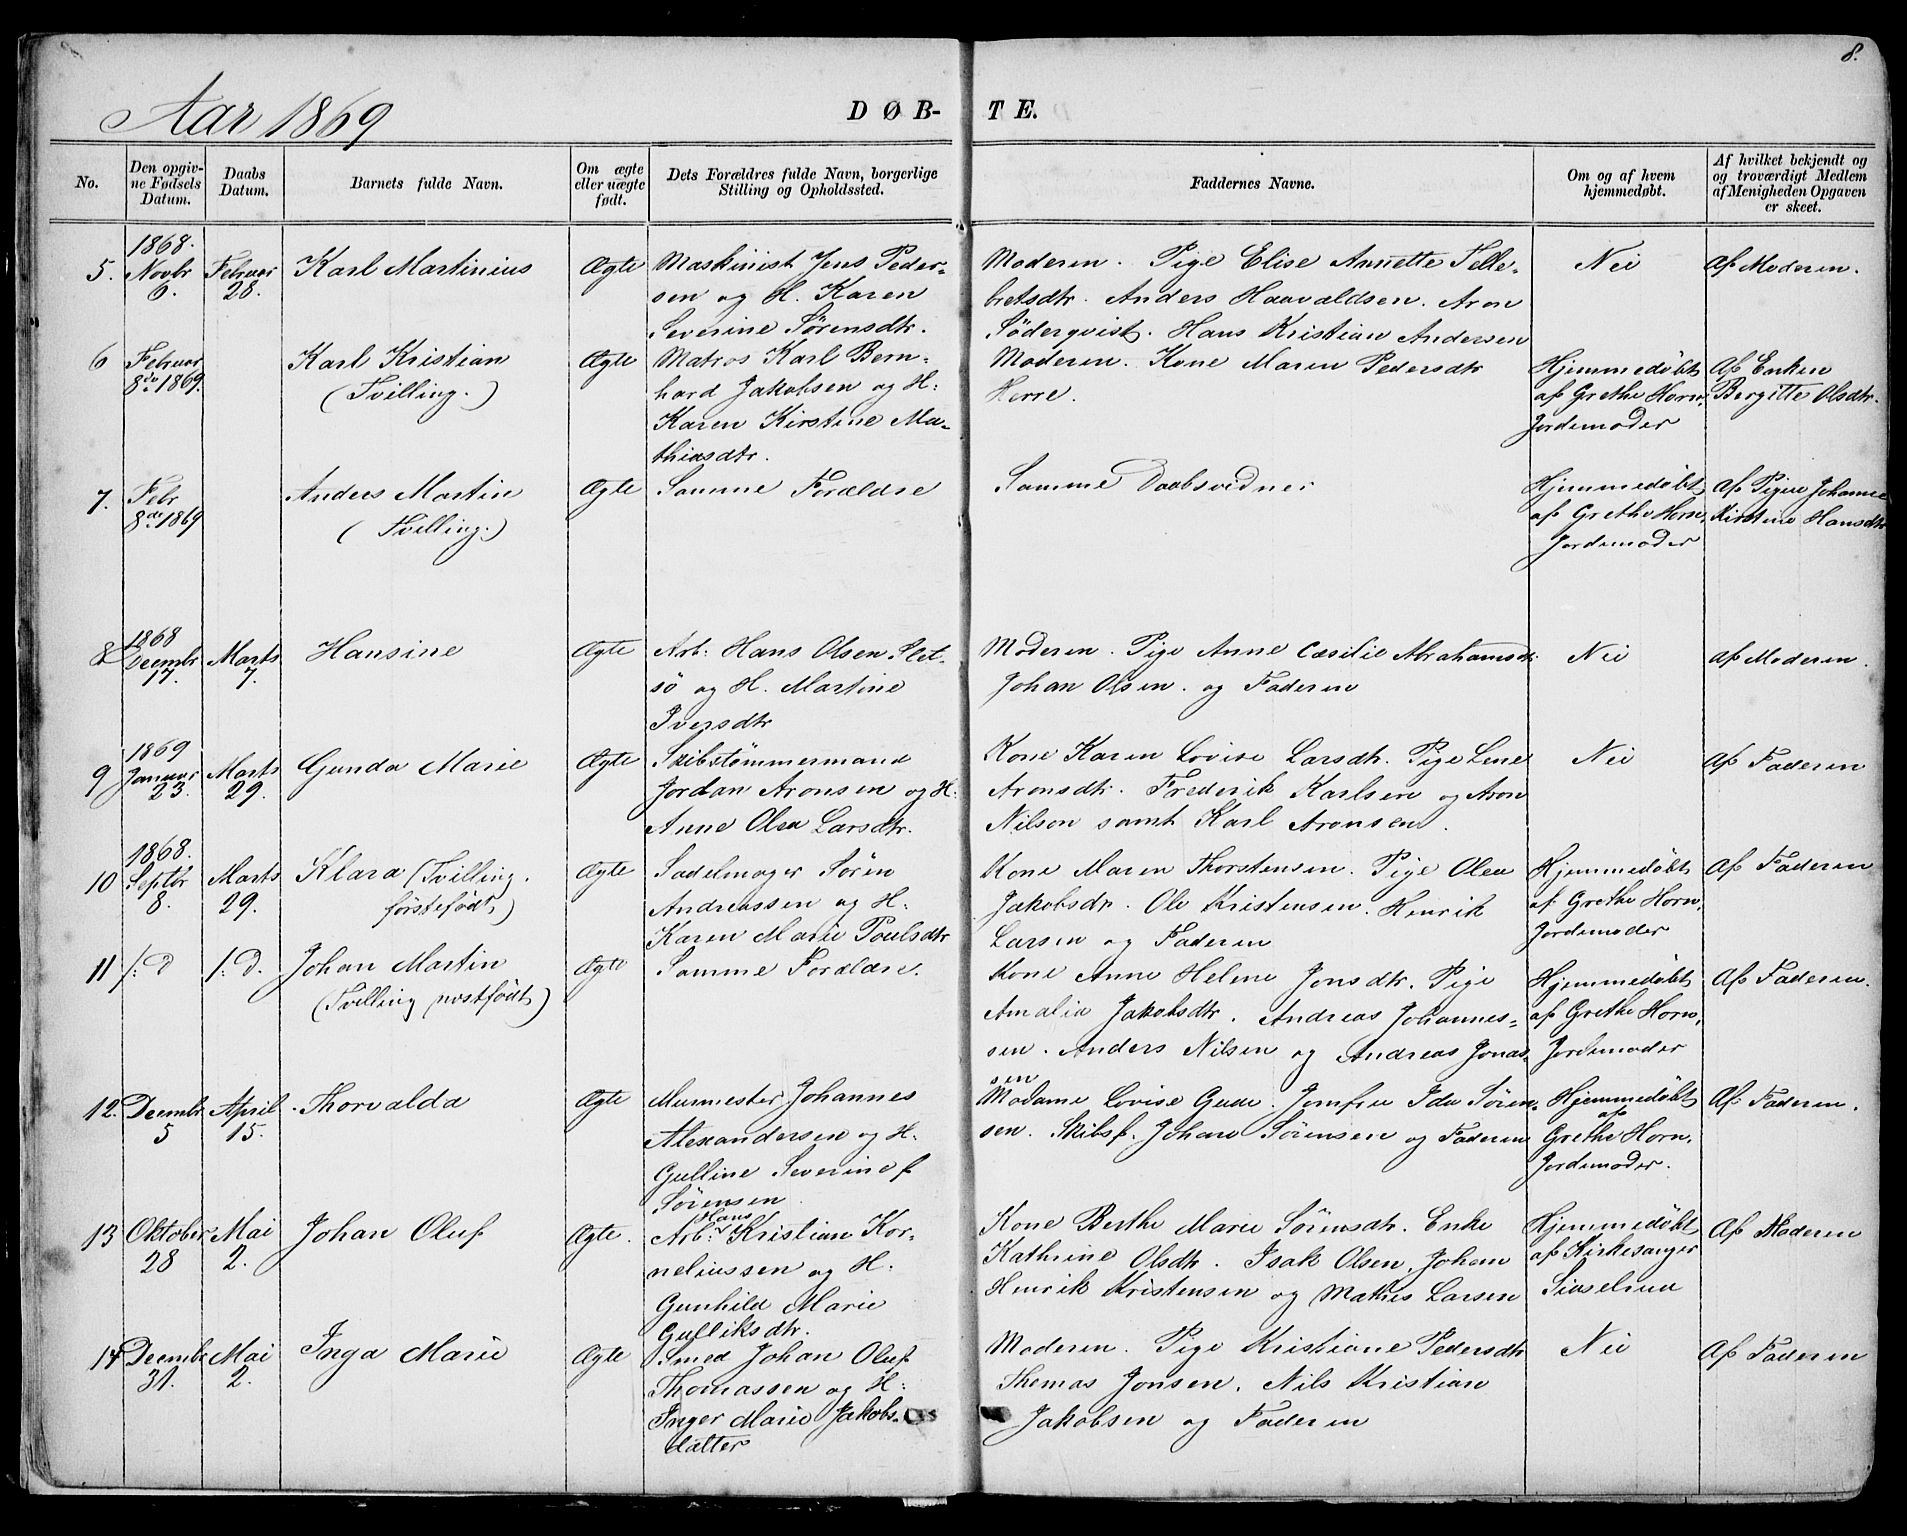 8.
Aar 1869
DØB-
TE.
No.
Den opgivne Fødsels Datum.
Daabs Datum.
Barnets fulde Navn.
Om ægte eller uægte født.
Dets Forældres fulde Navn, borgerlige Stilling og Opholdssted.
Faddernes Navne.
Om og af hvem hjemmedøbt.
Af hvilket bekjendt og troværdigt Medlem af Menigheden Opgaven er skeet.
5.
1868.
Novbr
6.
Februar
28.
Karl Martinius
Ægte
Maskinist Jens Peder-
sen og H. Karen
Severine Sørensdtr.
Moderen. Pige Elise Annette Telle-
bretsdtr. Anders Haavaldsen. Aron
Söderqvist. Hans Kristian Andersen
Nei
Af Moderen.
6
Februar
8de 1869.
Karl Kristian
(Tvilling.)
Ægte
Matros Karl Bern-
hard Jakobsen og H:
Karen Kirstine Ma-
thiasdtr.
Moderen. Kone Maren Pedersdtr
Herre.
Hjemmedøbt
af Grethe Horn,
Jordemoder
Af Enken
Bergitte Olsdtr.
7.
Febr
8de 1869
Anders Martin
(Tvilling.)
Ægte
Samme Forældre
Samme Daabsvidner
Hjemmedøbt
af Grethe Horn,
Jordemoder
Af Pigen Johanne
Kirstine Hansdtr
8
1868
Decembr
17.
Marts
7.
Hansine
Ægte
Arb: Hans Olsen Slet-
sö og H. Martine
Iversdtr
Moderen. Pige Anne Cæsilie Abrahamsdtr
Johan Olsen. og Faderen
Nei
Af Moderen.
9
1869
Januar
23.
Marts
29.
Gunda Marie
Ægte
Skibstømmermand
Jordan Aronsen og H:
Anne Olea Larsdtr.
Kone Karen Lovise Larsdtr. Pige Lene
Aronsdtr. Frederik Karlsen og Aron
Nilsen samt Karl Aronsen.
Nei
Af Faderen
10
1868.
Septbr
8.
Marts
29.
Klara (Tvilling.
førstefødt)
Ægte
Sadelmager Sören
Andreassen og H.
Karen Marie Poulsdtr
Kone Maren Thorstensen. Pige Olea
Jakobsdtr. Ole Kristensen. Henrik
Larsen og Faderen
Hjemmedøbt
af Grethe Horn,
Jordemoder
Af Faderen
11
/: d
/: d.
Johan Martin
(Tvilling nestfødt)
Ægte
Samme Forældre.
Kone Anne Helene Jonsdtr. Pige
Amalia Jakobsdtr. Andreas Johannes-
sen. Anders Nilsen og Andreas Jonas-
sen
Hjemmedøbt
af Grethe Horn,
Jordemoder
Af Faderen.
12.
Decembr
5
April
15.
Thorvalda
Ægte
Murmester Johannes
Alexandersen og H.
Gulline Severine f
Sörensen.
Madame Lovise Gude. Jomfru Ida Sören-
sen. Skibsf. Johan Sørensen og Faderen
Hjemmedøbt
af
Grethe Horn,
Jordemoder.
Af Faderen.
13
Oktober
28
Mai
2.
Johan Oluf
Ægte.
Hans
Arb: Kristian Kor-
neliussen og H.
Gunhild Marie
Gulliksdtr.
Kone Berthe Marie Sörensdtr. Enke
Kathrine Olsdtr. Isak Olsen, Johan
Henrik Kristensen og Mathis Larsen
Hjemmedøbt
af Kirkesanger
Af Moderen
14
Decembr
31.
Mai
2.
Inga Marie
Ægte
Smed Johan Oluf
Thomassen og H:
Inger Marie Jakobs-
datter
Moderen. Pige Kristiane Pedersdtr
Thomas Jonsen. Nils Kristian
Jakobsen og Faderen
Nei
Af Faderen